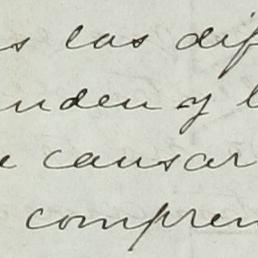 s las dif
nden y l
e causar
compren